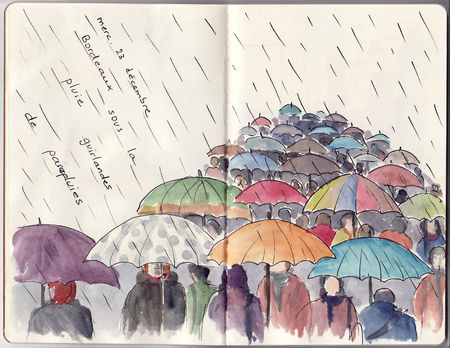 merc. 23 décembre
Bordeaux sous la
pluie guirlandes
de parapluies